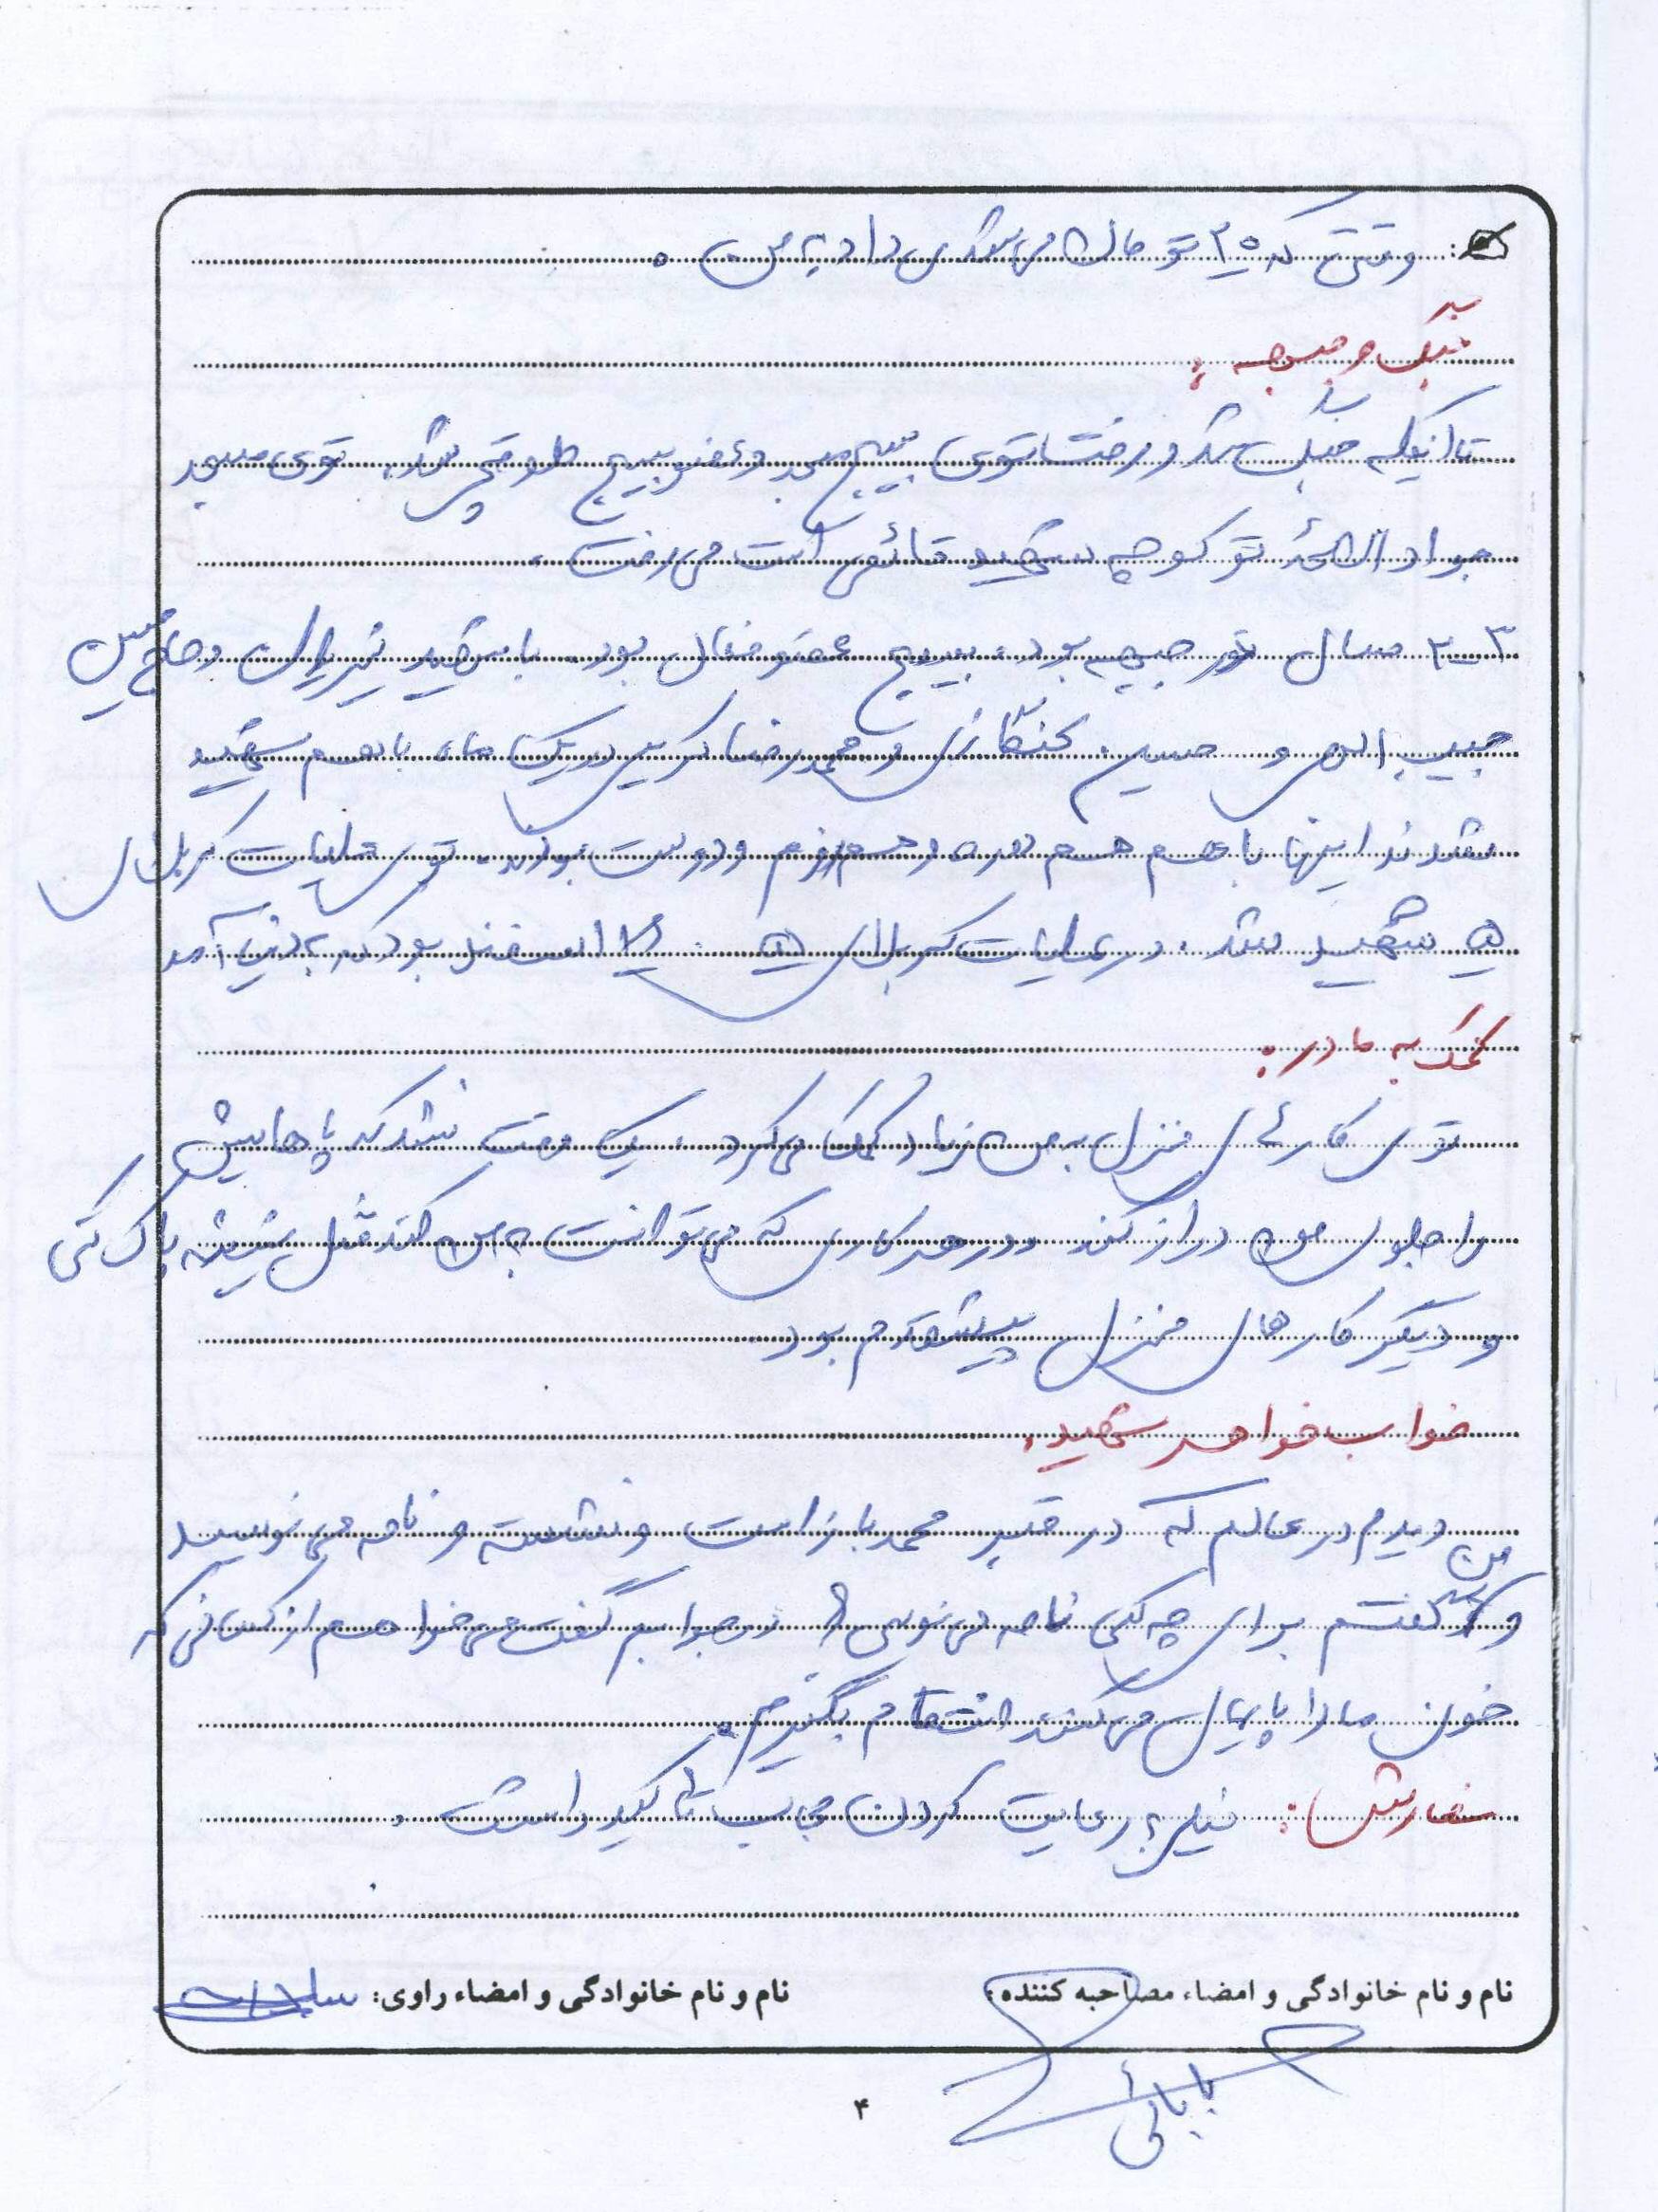 وقتی که ۲۰ تو مان می شد می داد به من .
جنگ و جبهه :
تا اینکه جنگ شد و رفت توی بسیج مسجد و عضو بسیج شد . توی مسجد
جواد الائمه تو کوچه شهید قائمی است می رفت .
۳-۲ سال تو جبهه بود . بسیج عضو فعال بود . با شهید و حاج حسین
حبیب اللهی و حسین و محمدرضا کریمی در یک ماه با هم شهید
شدند اینها با هم هم دوره و هم رزم و دوست بودند . توی عملیات کربلای
۵ شهید شد . در عملیات کربلای ۵ . اسفند بود که به دنیا آمد
کمک به مادر :
توی کارهای منزل به من زیاد کمک می کرد . یک وقت نشد که پاهایش
را جلوی من دراز کند و در هر کاری که می توانست به من کند مثل شیشه پاک کنی
و دیگر کارهای منزل پیشقدم بود
خواب خواهر شهید :
من دیدم در عالم که در قبر محمد باز است و نشسته و نامه می نویسد
و گفتم برای چه کسی نامه می نویسی ؟ در جوابم گفت می خواهم از کسانی که
خون ما را پایمال می کنند انتقام بگیرم .
سفارش : خیلی به رعایت کردن حجاب تاکید داشت .
نام و نام خانوادگی و امضاء مصاحبه کننده:
نام و نام خانوادگی و امضاء راوی:
بابائی
۴